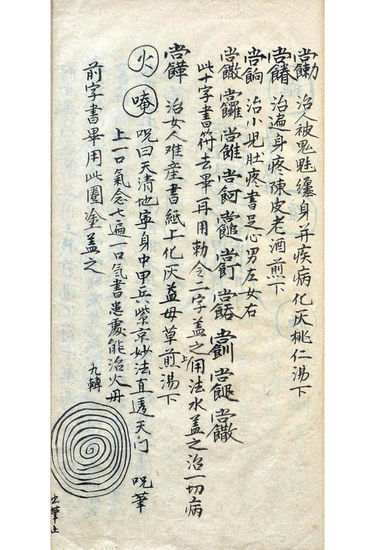 治人被鬼魅纏身并疾病化灰桃仁湯下
治遍身疼陳皮老酒煎下
治小児肚疼書足心男左女右
此十字書符去畢再用勅令二字盖之上用法水盖之治一切病
治女人难産書紙上化灰益母草煎湯下
火 唵 咒曰天清地寧身中甲兵紫京妙法直透天门 咒筆
上一口氣念七遍一口气書患處能治火丹
前字書畢用此圈塗盖之
九轉
出筆止